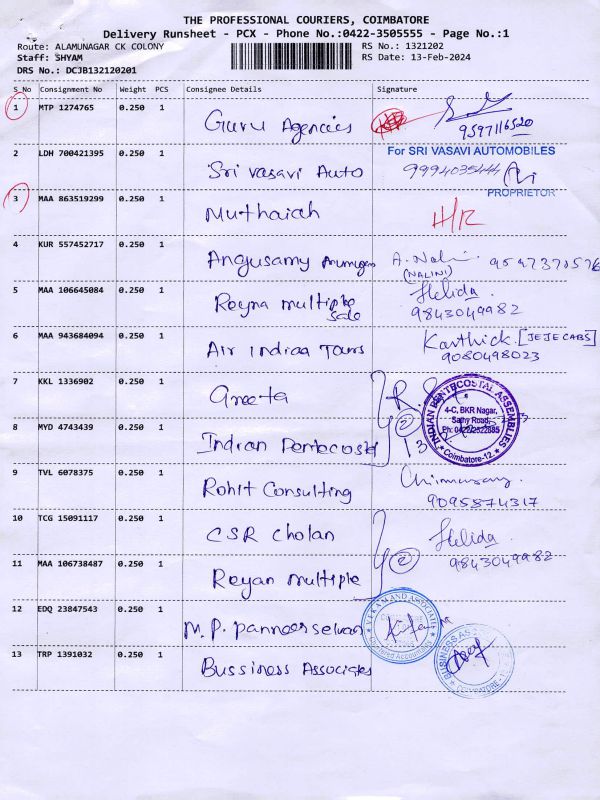 THE PROFESSIONAL COURIERS, COIMBATORE
Delivery Runsheet - PCX - Phone No.:0422-3505555 - Page No.:1
Route: ALAMUNAGAR CK COLONY RS No.: 1321202
Staff: SHYAM RS Date: 13-Feb-2024
DRS No.: DCJB132120201
S_No Consignment No Weight PCS Consignee Details Signature
1 MTP 1274765 0.250 1 Guru Agencies 9597116520
2 LDH 700421395 0.250 1 Sri Vasavi Auto For SRI VASAVI AUTOMOBILES
9994035444
PROPRIETOR
3 MAA 863519299 0.250 1 Muthaiah H/R
4 KUR 557452717 0.250 1 Angusamy Arumugam A. Nalini 9597370576
(NALINI)
5 MAA 106645084 0.250 1 Reyna multiple Sale Helida
9843049982
6 MAA 943684094 0.250 1 Air Indiaa Tours Karthick. [JEJE CABS]
9080498023
7 KKL 1336902 0.250 1 Greeta
INDIAN PENTECOSTAL ASSEMBLIES
4-C, BKR Nagar,
Sathy Road,
Ph: 0422/2522885
Coimbatore-12
8 MYD 4743439 0.250 1 Indian Pentecostal 2 13
9 TVL 6078375 0.250 1 Rohit Consulting
9095874317
10 TCG 15091117 0.250 1 CSR Cholan Helida
2 9843049982
11 MAA 106738487 0.250 1 Reyan multiple
12 EDQ 23847543 0.250 1 M.P. Panneerselvan
13 TRP 1391032 0.250 1 Bussiness Associates
BUSINESS
COIMBATORE